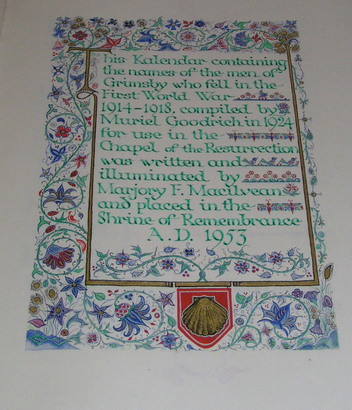 This Kalendar containing
the names of the men of
Grimsby who fell in the
First World War
1914-1918, compiled by
Muriel Goodrich in 1924
for use in the
Chapel of the Resurrection
was written and
illuminated by
Marjory F. MacIlvean
and placed in the
Shrine of Remembrance
A.D. 1953